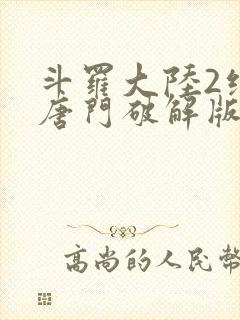 斗羅大陸2
唐門破解版
高尚的人民幣